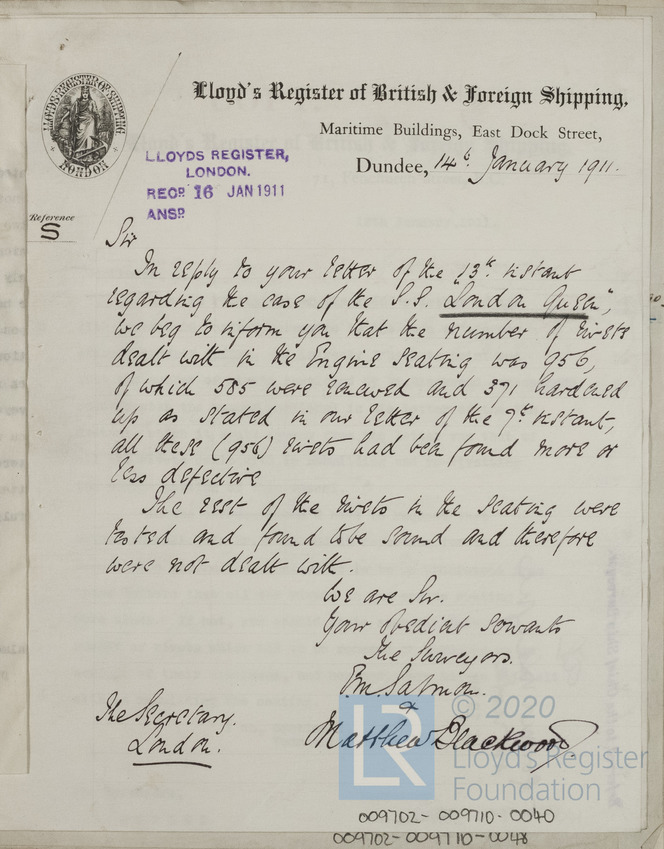 LLOYD'S REGISTER OF SHIPPING
LONDON
Lloyd's Register of British & Foreign Shipping,
Maritime Buildings, East Dock Street,
Dundee, 14th January 1911.
LLOYDS REGISTER,
LONDON.
RECD. 16 JAN 1911
ANSD.
Reference
S
Sir
In reply to your letter of the 13th instant
regarding the case of the S.S. "London Queen",
we beg to inform you that the number of rivets
dealt with in the Engine seating was 956,
of which 585 were renewed and 371 hardened
up as stated in our letter of the 7th instant,
all these (956) rivets had been found more or
less defective
The rest of the rivets in the seating were
tested and found to be sound and therefore
were not dealt with.
We are Sir.
Your obedient servants
The Surveyors.
Salmon.
&
Matthew Blackwood
The Secretary.
London.
LR
© 2020
Lloyd's Register
Foundation
009702-009710-0040
009702-009710-0048